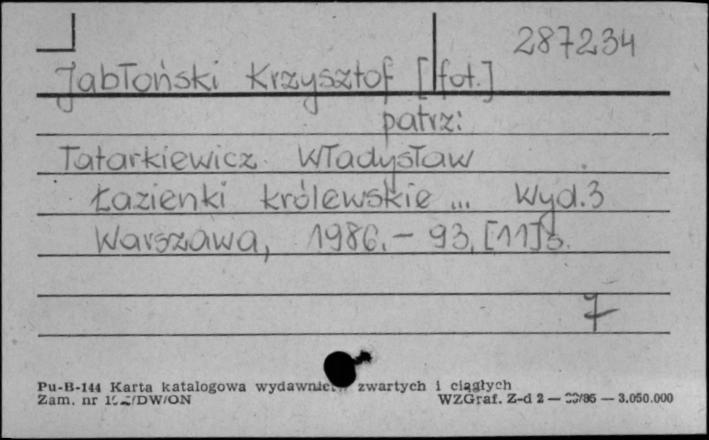 287234
Jabłoński Krzysztof [fot.]
patrz:
Tatarkiewicz Władysław
Łazienki królewskie ... Wyd.3
Warszawa, 1986. – 93, [11] s.
7
Pu-B-144 Karta katalogowa zwartych i ciągłych
Zam. nr WZGraf. Z-d 2 — — 3.050.000